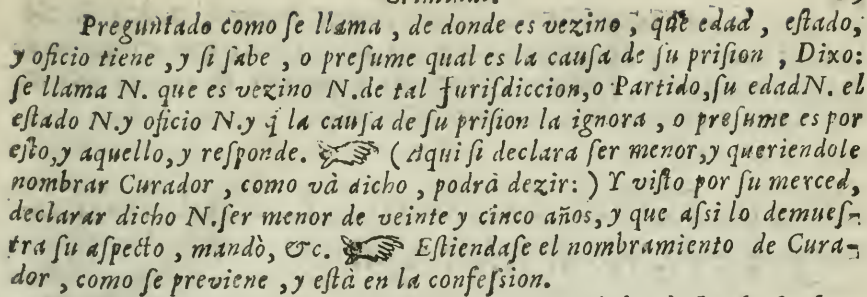 Preguntado como ſe llama , de donde es vezino , què edad , eſtado,
y oficio tiene , y ſi ſabe , o preſume qual es la cauſa de ſu priſion , Dixo:
ſe llama N. que es vezino N. de tal Juriſdiccion, o Partido, ſu edad N. el
eſtado N. y oficio N. y q̃ la cauſa de ſu priſion la ignora , o preſume es por
eſto, y aquello, y reſponde. ☞ ( Aqui ſi declara ſer menor, y queriendole
nombrar Curador , como và dicho , podrà dezir: ) Y viſto por ſu merced,
declarar dicho N. ſer menor de veinte y cinco años, y que aſsi lo demueſ-
tra ſu aſpecto , mandò, &c. ☞ Eſtiendaſe el nombramiento de Cura-
dor , como ſe previene , y eſtà en la confeſsion.